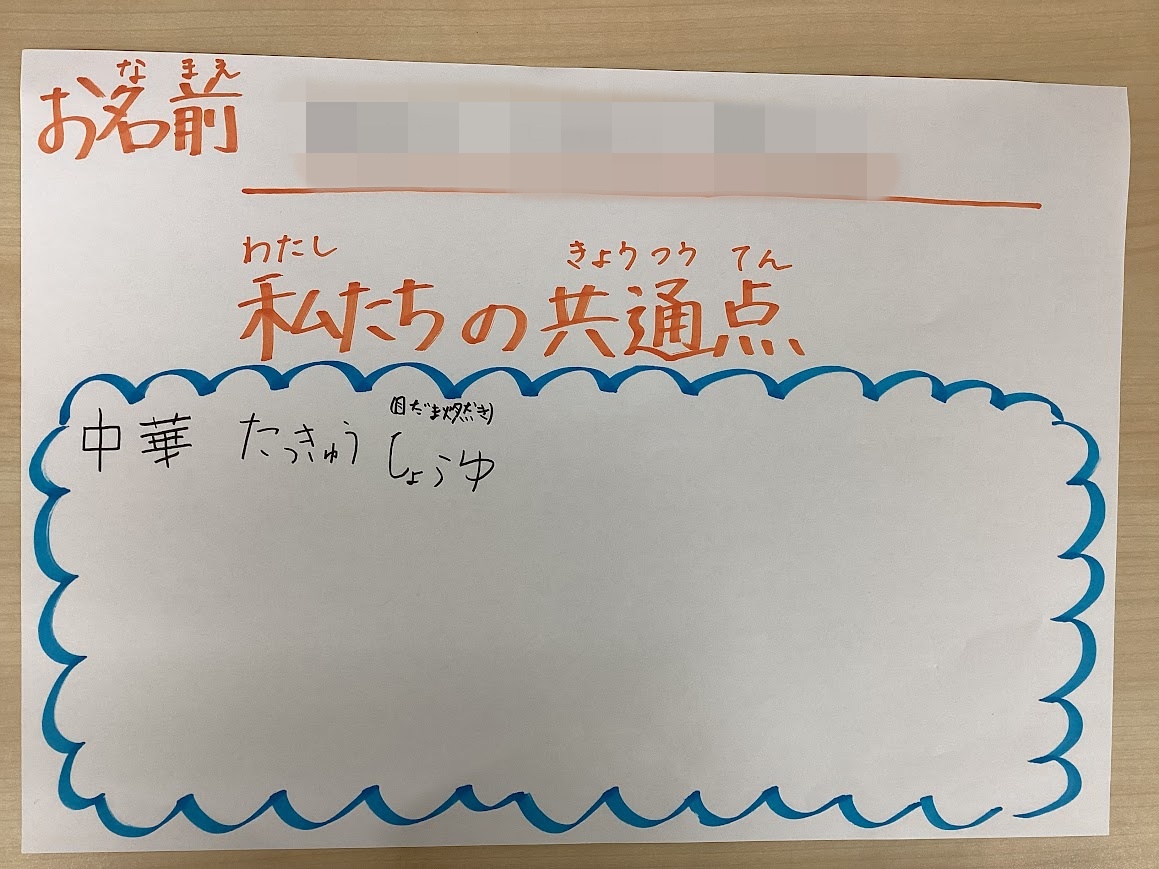 なまえ
お名前
わたし きょうつう てん
私たちの共通点
(目だま燃だき)
中華 たっきゅう しょうゆ